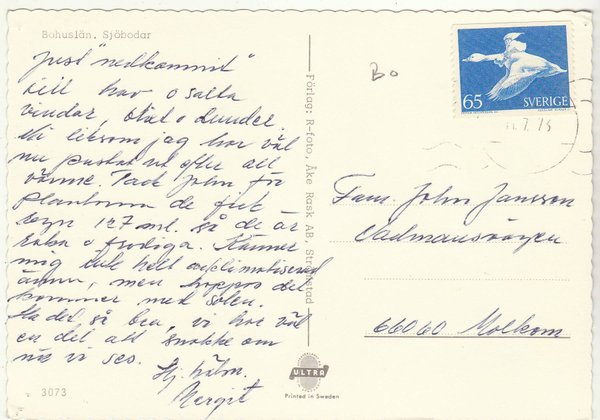 Bohuslän. Sjöbodar
just "nedkommit"
till hav o salta
vindar, blåst o dunder.
Ni liksom jag har väl
nu pustat ut efter all
värme. Tack John för
plantorna de fick
regn 127 ml. så de är
raka o frodiga. Känner
mig inte helt acklimatiserad
ännu, men hoppas det
kommer med solen.
Ha det så bra, vi har väl
en del att snakke om
när vi ses.
Hj. häls.
Margit
3073
Förlag: R-foto, Åke Rask AB Strömstad
ULTRA
Printed in Sweden
Bo
65 SVERIGE
7. 75
Fam. John Jansson
66060 Molkom